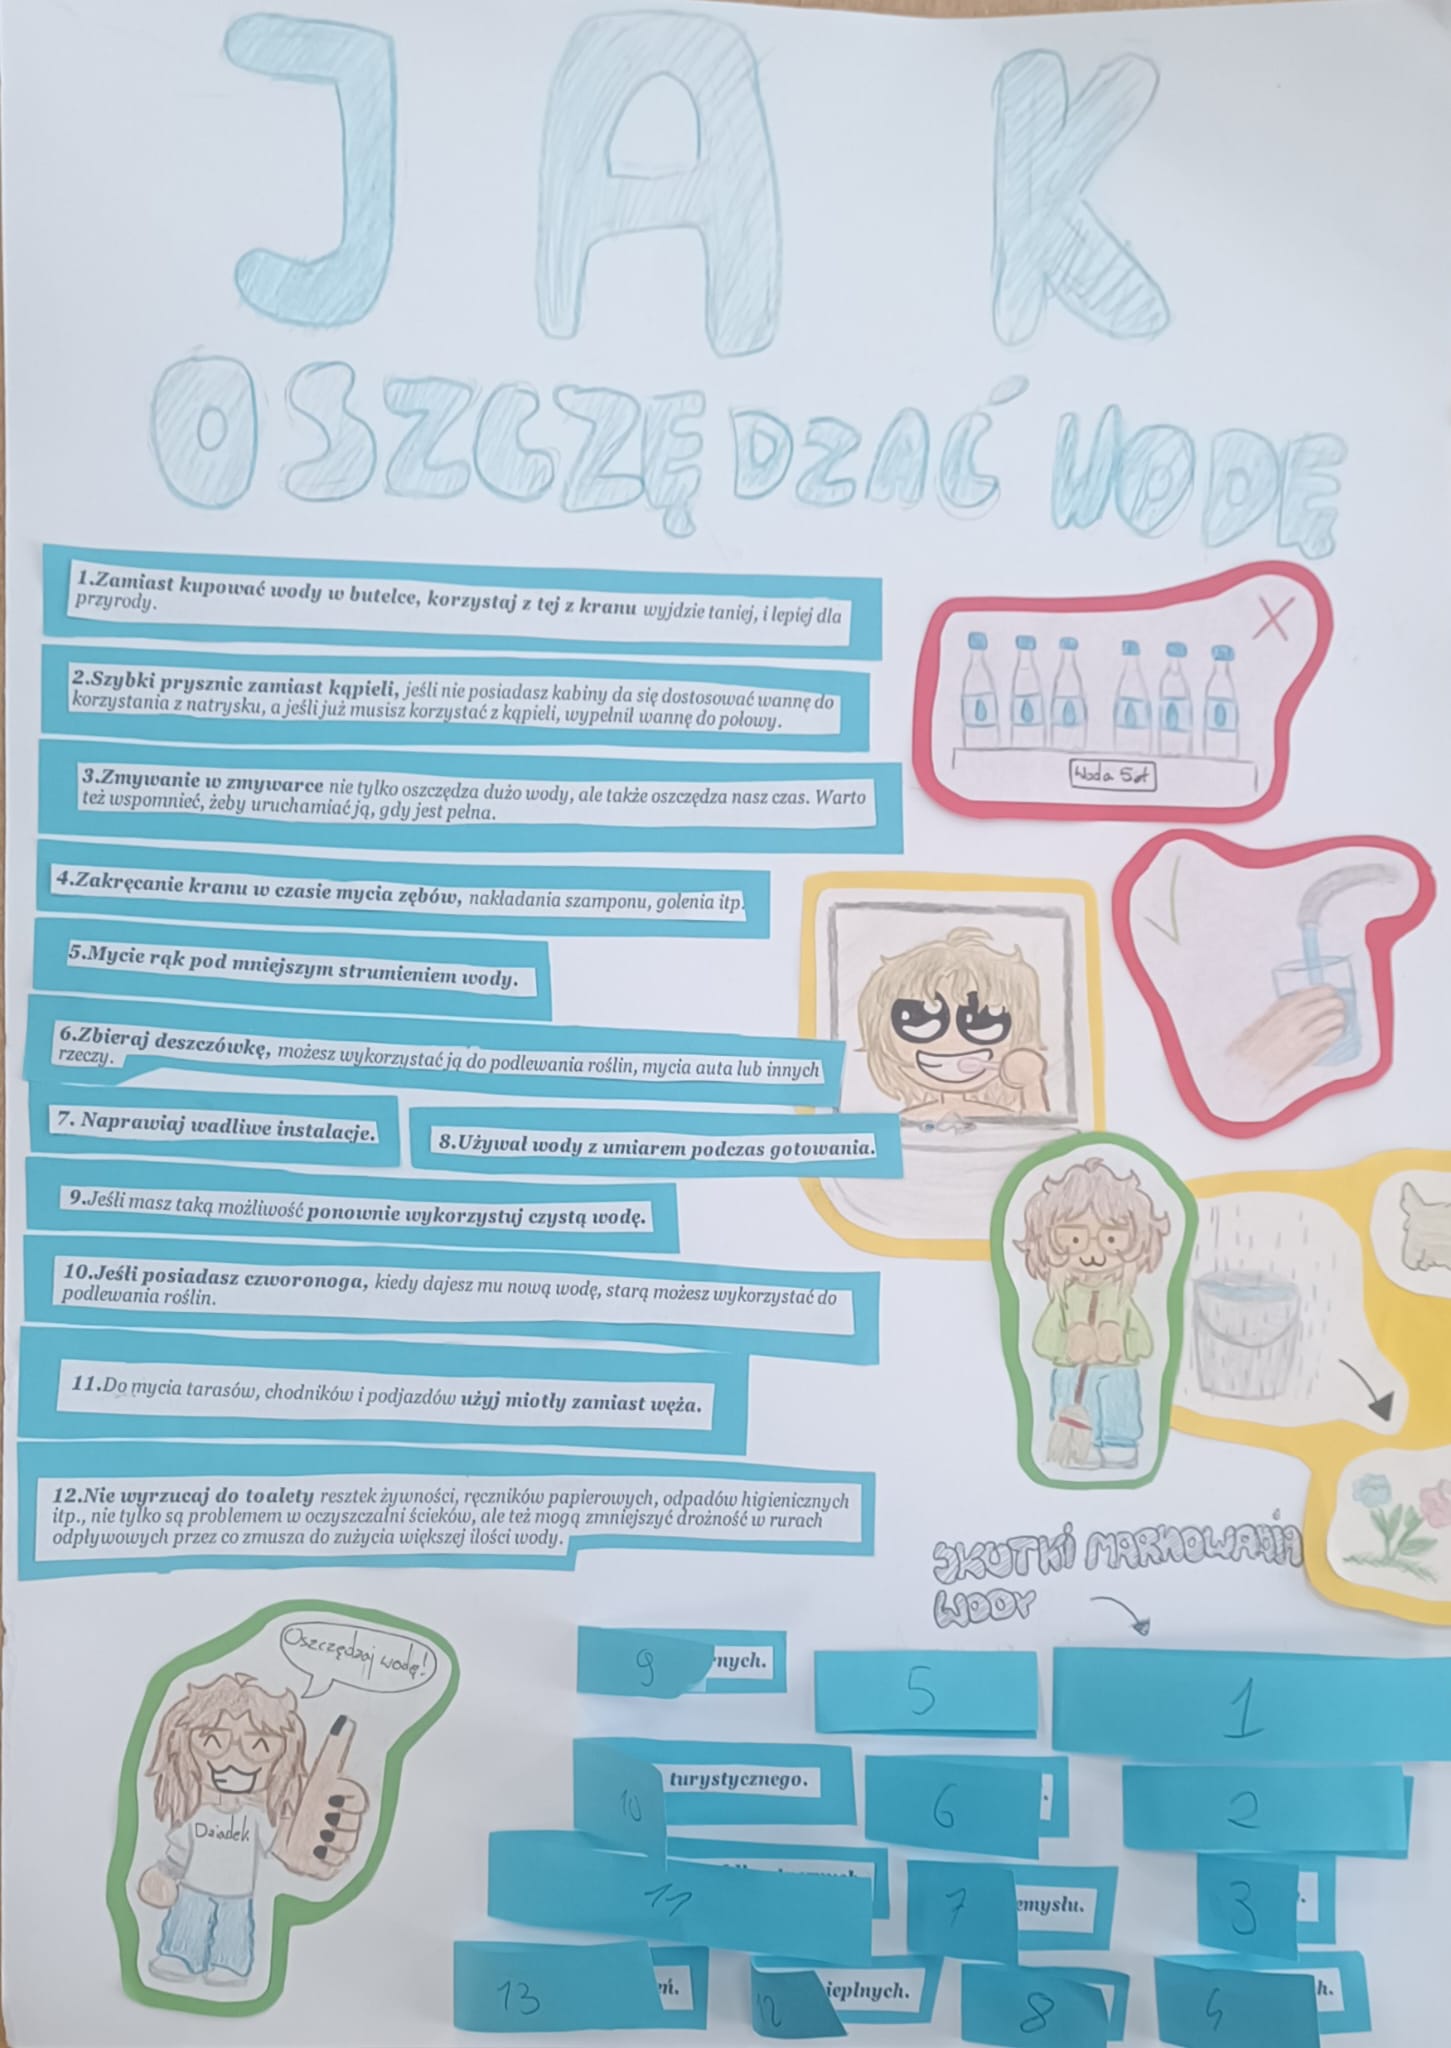 JAK
OSZCZĘDZAĆ WODĘ
1.Zamiast kupować wody w butelce, korzystaj z tej z kranu wyjdzie taniej, i lepiej dla
przyrody.
2.Szybki prysznic zamiast kąpieli, jeśli nie posiadasz kabiny da się dostosować wannę do
korzystania z natrysku, a jeśli już musisz korzystać z kąpieli, wypełnił wannę do połowy.
3.Zmywanie w zmywarce nie tylko oszczędza dużo wody, ale także oszczędza nasz czas. Warto
też wspomnieć, żeby uruchamiać ją, gdy jest pełna.
4.Zakręcanie kranu w czasie mycia zębów, nakładania szamponu, golenia itp.
5.Mycie rąk pod mniejszym strumieniem wody.
6.Zbieraj deszczówkę, możesz wykorzystać ją do podlewania roślin, mycia auta lub innych
rzeczy.
7. Naprawiaj wadliwe instalacje.
8.Używał wody z umiarem podczas gotowania.
9.Jeśli masz taką możliwość ponownie wykorzystuj czystą wodę.
10.Jeśli posiadasz czworonoga, kiedy dajesz mu nową wodę, starą możesz wykorzystać do
podlewania roślin.
11.Do mycia tarasów, chodników i podjazdów użyj miotły zamiast węża.
12.Nie wyrzucaj do toalety resztek żywności, ręczników papierowych, odpadów higienicznych
itp., nie tylko są problemem w oczyszczalni ścieków, ale też mogą zmniejszyć drożność w rurach
odpływowych przez co zmusza do zużycia większej ilości wody.
Woda 5zł
Oszczędzaj wodę!
Dziadek
SKUTKI MARNOWANIA
WODY
9 nych.
5
1
10 turystycznego.
6
2
11
7 emysłu.
3
13 ń.
12 ieplnych.
8
4 h.